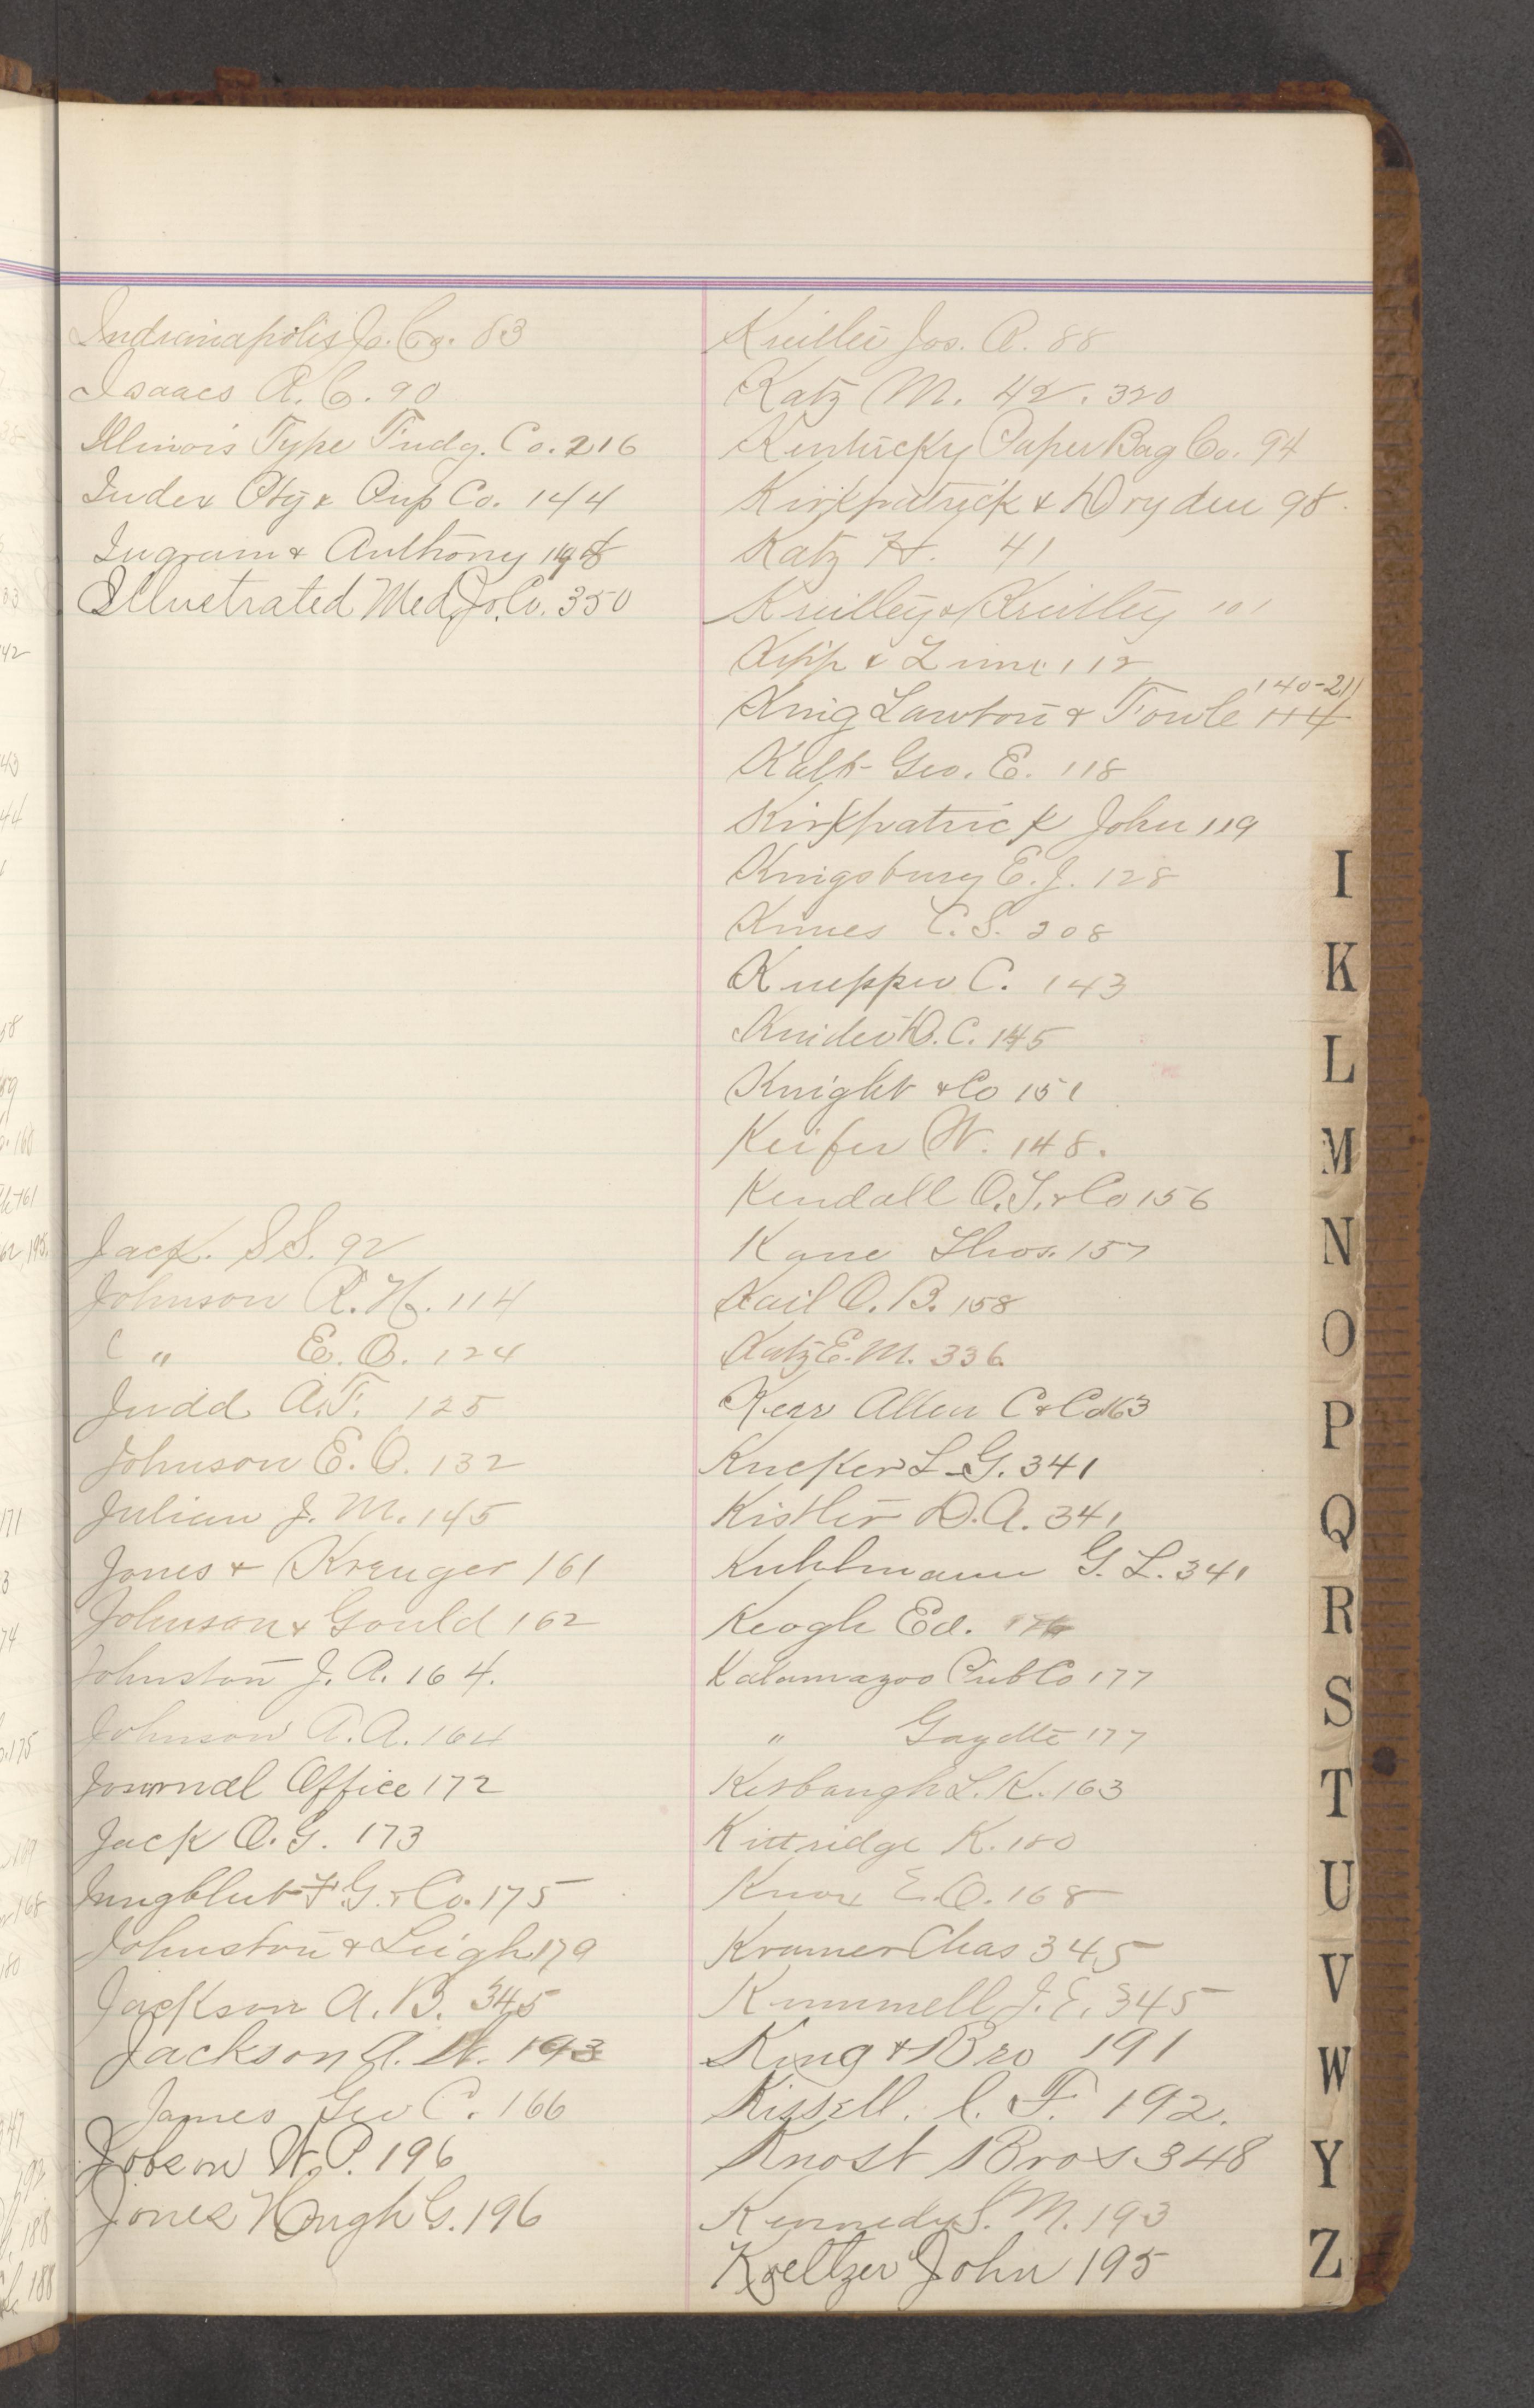 Indianapolis Jo. Co. 83
Isaacs R. C. 90
Illinois Type Fndg. Co. 216
Index Ptg & Pup Co. 144
Ingram & Anthony
Illustrated Med. Jo. Co. 350
Jack. S S. 92
Johnson R. H. 114
" E. O. 124
Judd A. T. 125
Johnson E. O. 132
Julian J. M. 145
Jones & Kreuger 161
Johnson & Gould 162
Johnston J. A. 164.
Johnson A. A. 164
Journal Office 172
Jack O. G. 173
Jungblut F. G. & Co. 175
Johnston & Leigh 179
Jackson A. B. 345
Jackson A. W. 193
James Geo C. 166
Jobson W. P. 196
Jones Hugh G. 196
Jos. A. 88
Katz M. 42. 320
Kentucky Paper Bag Co. 94
Kirkpatrick & Dryden 98
Katz H. 41
101
Kipp & 112
140-211
King Lawton & Fowle 114
Kalb Geo. E. 118
Kirkpatrick John 119
Kingsbury E. J. 128
C. S. 208
Kuepper C. 143
D. C. 145
Knight & Co 151
Keifer W. 148.
Kendall O. T. & Co 156
Kane Thos. 157
Kail O. B. 158
Katz E. M. 336
Kerr Allen C & Co 163
Kucker L. G. 341
Kistler D. A. 341
Kuhlmann G. L. 341
Keogh Ed. 176
Kalamazoo Pub Co 177
" Gazette 177
L. K. 163
Kittridge K. 180
Knox E. O. 168
Kramer Chas 345
Kummell J. E. 345
King & Bro 191
Kissell. C. F. 192.
Knost Bros 348
Kennedy S. M. 193
Koeltzer John 195
I
K
L
M
N
O
P
Q
R
S
T
U
V
W
Y
Z